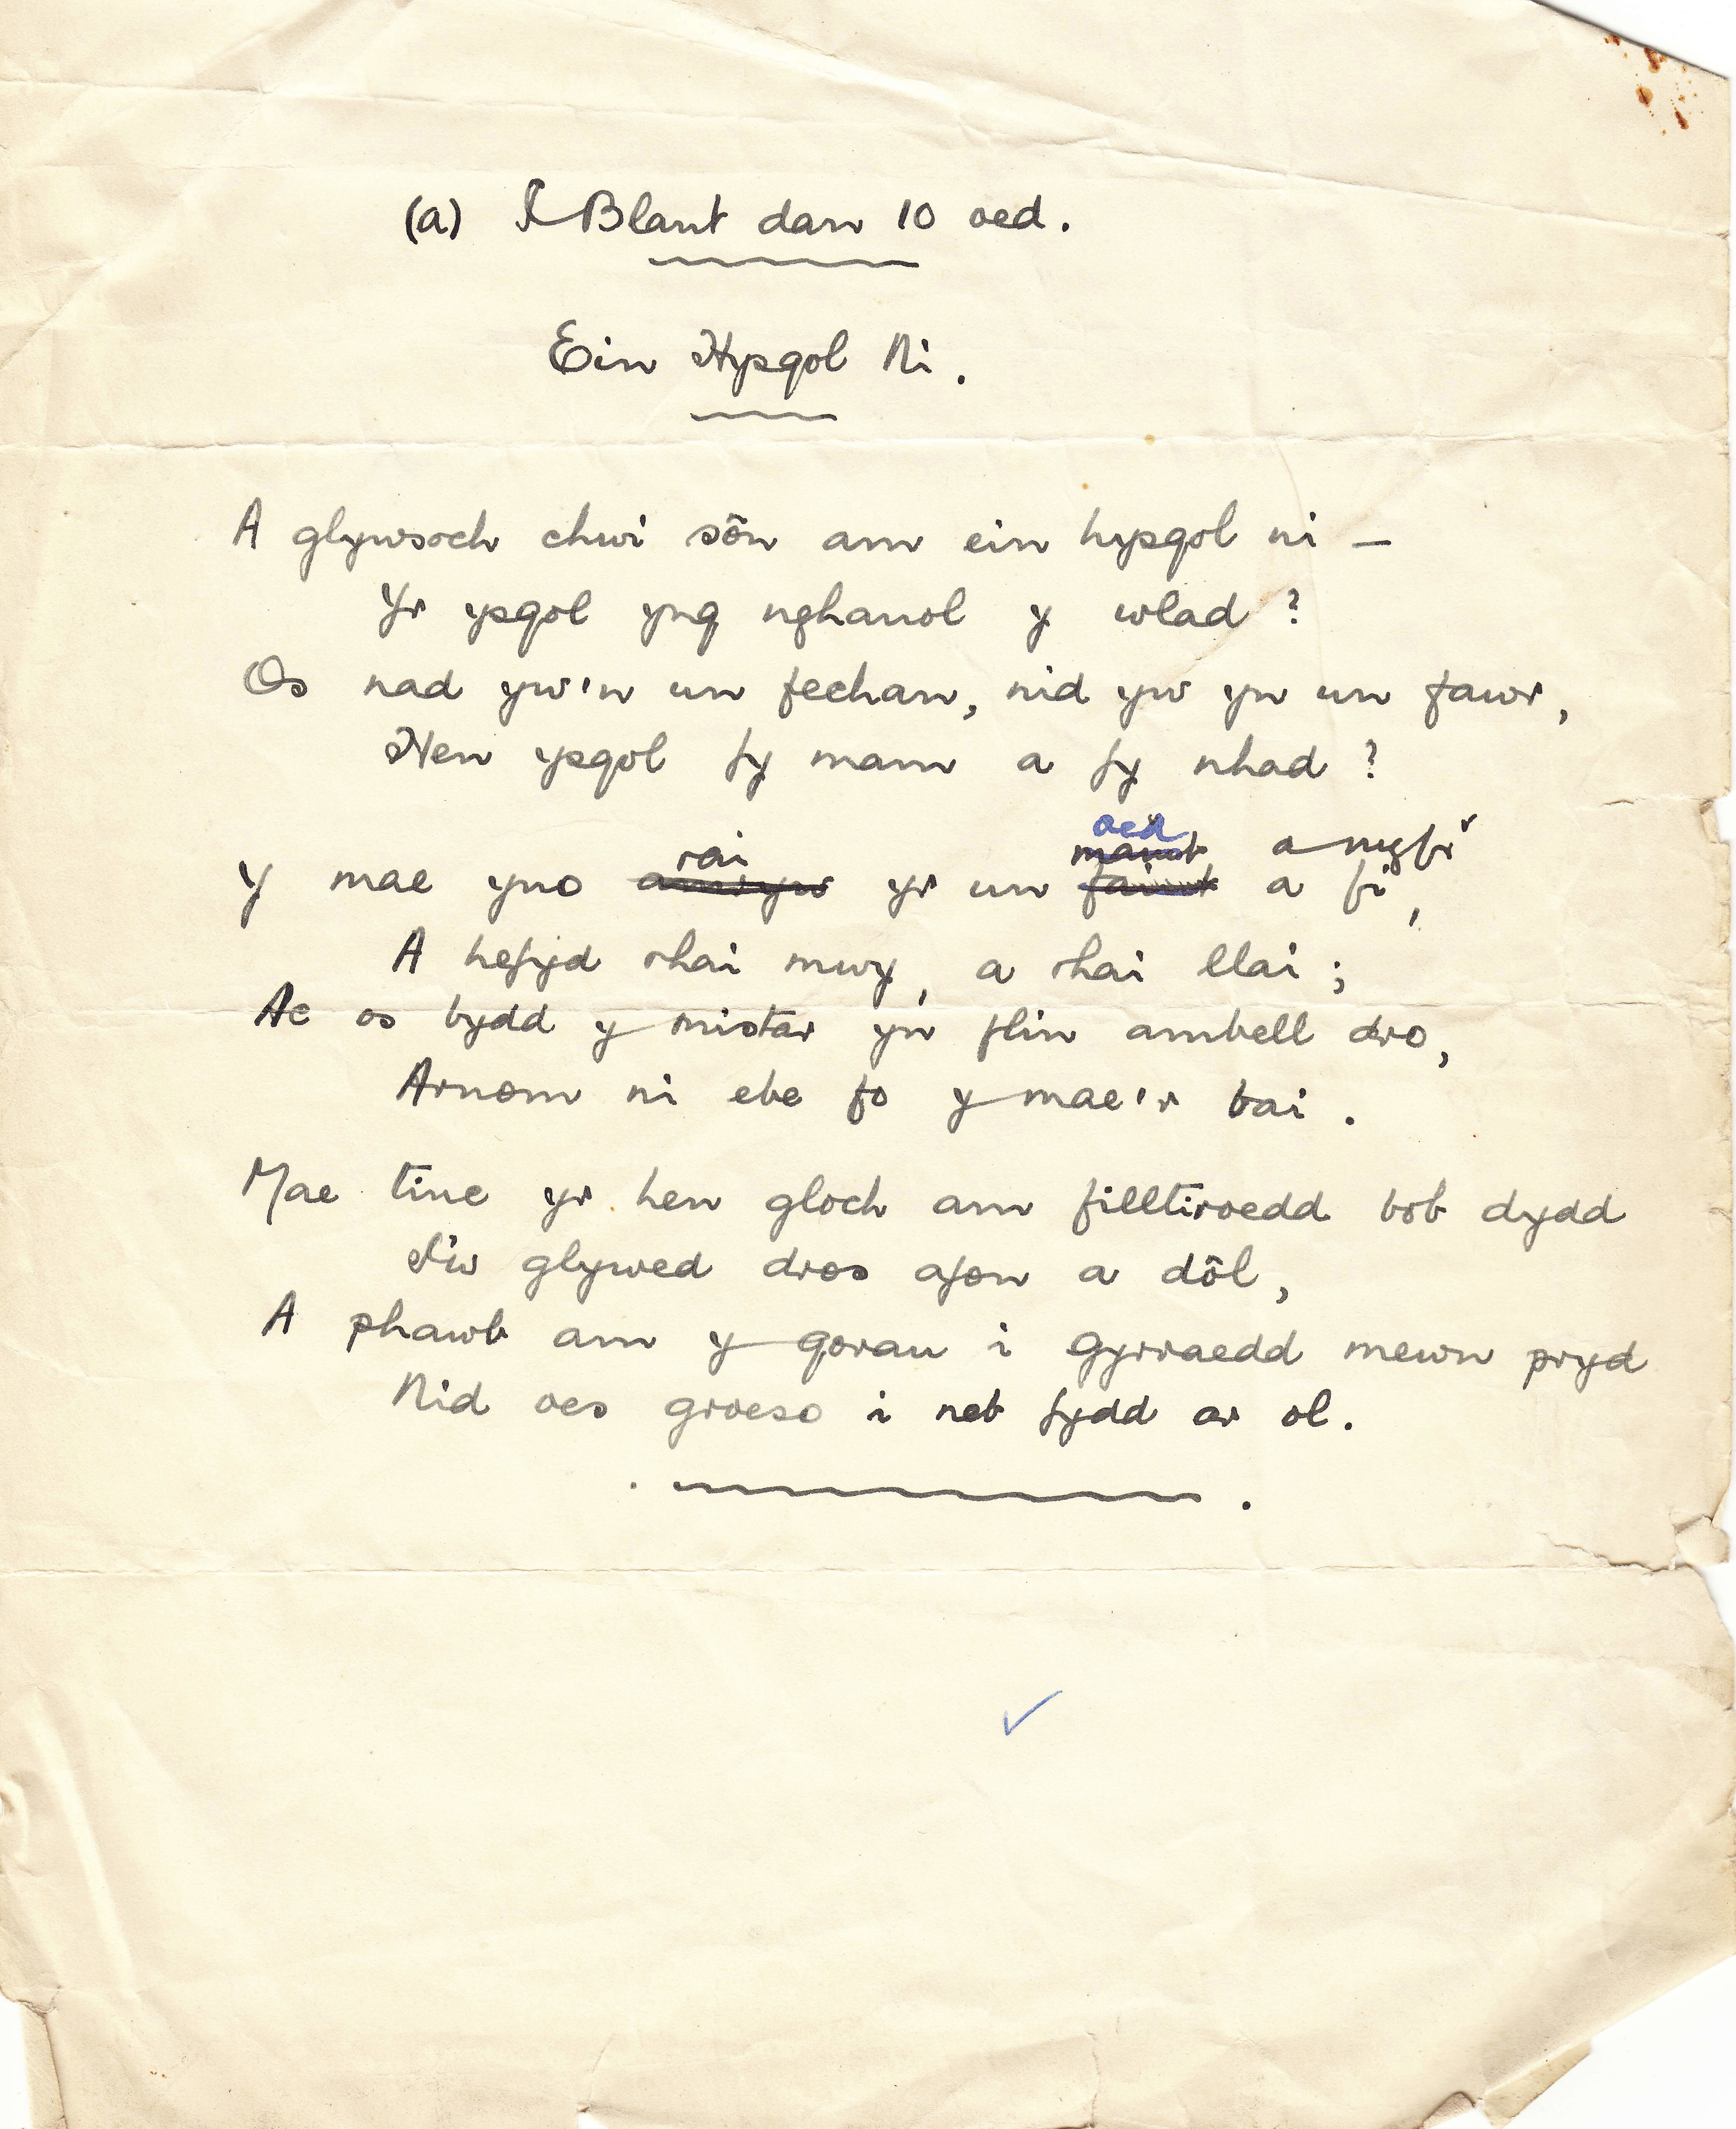 (a) I Blant dan 10 oed.
Ein Hysgol Ni.
A glywsoch chwi sôn am ein hysgol ni –
Yr ysgol yng nghanol y wlad?
Os nad yw'n un fechan, nid yw yn un fawr,
Hen ysgol fy mam a fy nhad?
oed
rai maint a mygfi
Y mae yno amryw yr un faint a fi,
A hefyd rhai mwy, a rhai llai;
Ac os bydd y mistar yn flin ambell dro,
Arnom ni ebe fo y mae'r bai.
Mae tinc yr hen gloch am filltiroedd bob dydd
I'w glywed dros afon a dôl,
A phawb am y gorau i gyrraedd mewn pryd
Nid oes groeso i neb fydd ar ol.